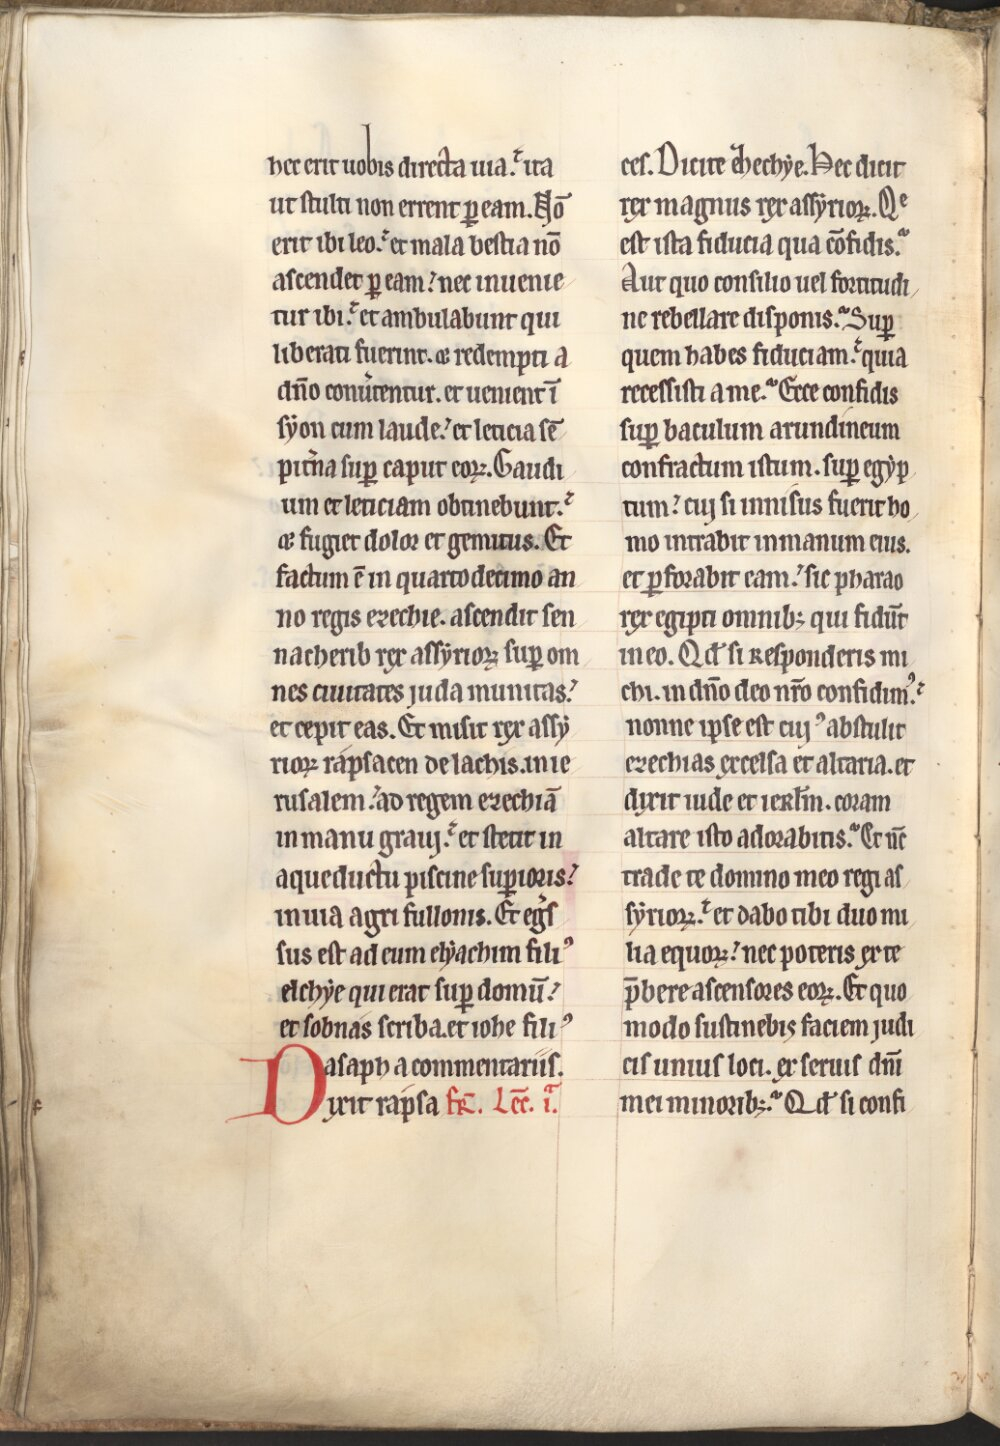 hec erit uobis directa uia. ita
ut stulti non errent ꝑ eam. Nō
erit ibi leo. et mala bestia nō
ascendet ꝑ eam. nec inuenie
tur ibi. et ambulabunt qui
liberati fuerint. ⁊ redempti a
dn̄o conu̓tentur. et uenient ī
sẏon cum laude. et leticia sē
pit̓na suꝑ caput eoꝝ. Gaudi
um et leticiam obtinebunt.
⁊ fugiet dolor et gemitus. Et
factum ē in quarto decimo an
no regis ezechie. ascendit sen
nacherib rex assẏrioꝝ suꝑ om
nes ciuitates juda munitas.
et cepit eas. Et misit rex assẏ
rioꝝ rapsacen de lachis. in ie
rusalem. ad regem ezechiā
in manu grauj. et stetit in
aqueductu piscine suꝑioris.
in uia agri fullonis. Et eg̓s
sus est ad eum elẏachim filiꝰ
elchẏe qui erat suꝑ domū.
et sobnas scriba. et iohe filiꝰ
asaph a commentariis.
Dixit rapsa fr̄. Lēc. i.ᵃ
ces. Dicite ēhechẏe. Hec dicit
rex magnus rex assẏrioꝝ. Qᵉ
est ista fiducia qua cōfidis.
Aut quo consilio uel fortitudi
ne rebellare disponis. Suꝑ
quem habes fiduciam. quia
recessisti a me. Ecce confidis
suꝑ baculum arundineum
confractum istum. suꝑ egẏp
tum. cuj si innisus fuerit ho
mo intrabit in manum eius.
et ꝑforabit eam. sic pharao
rex egipti omnibꝫ qui fidūt
in eo. Qđ si responderis mi
chi. in dn̄o deo nr̄o confidimꝰ.
nonne ipse est cujꝰ abstulit
ezechias excelsa et altaria. et
dixit iude et ierl̄m. coram
altare isto adorabitis. Et ūc
trade te domino meo regi as
sẏrioꝝ. et dabo tibi duo mi
lia equoꝝ. nec poteris ex te
p̄bere ascensores eoꝝ. Et quo
modo sustinebis faciem judi
cis unius loci. ex seruis dn̄i
mei minoribꝫ. Qđ si confi